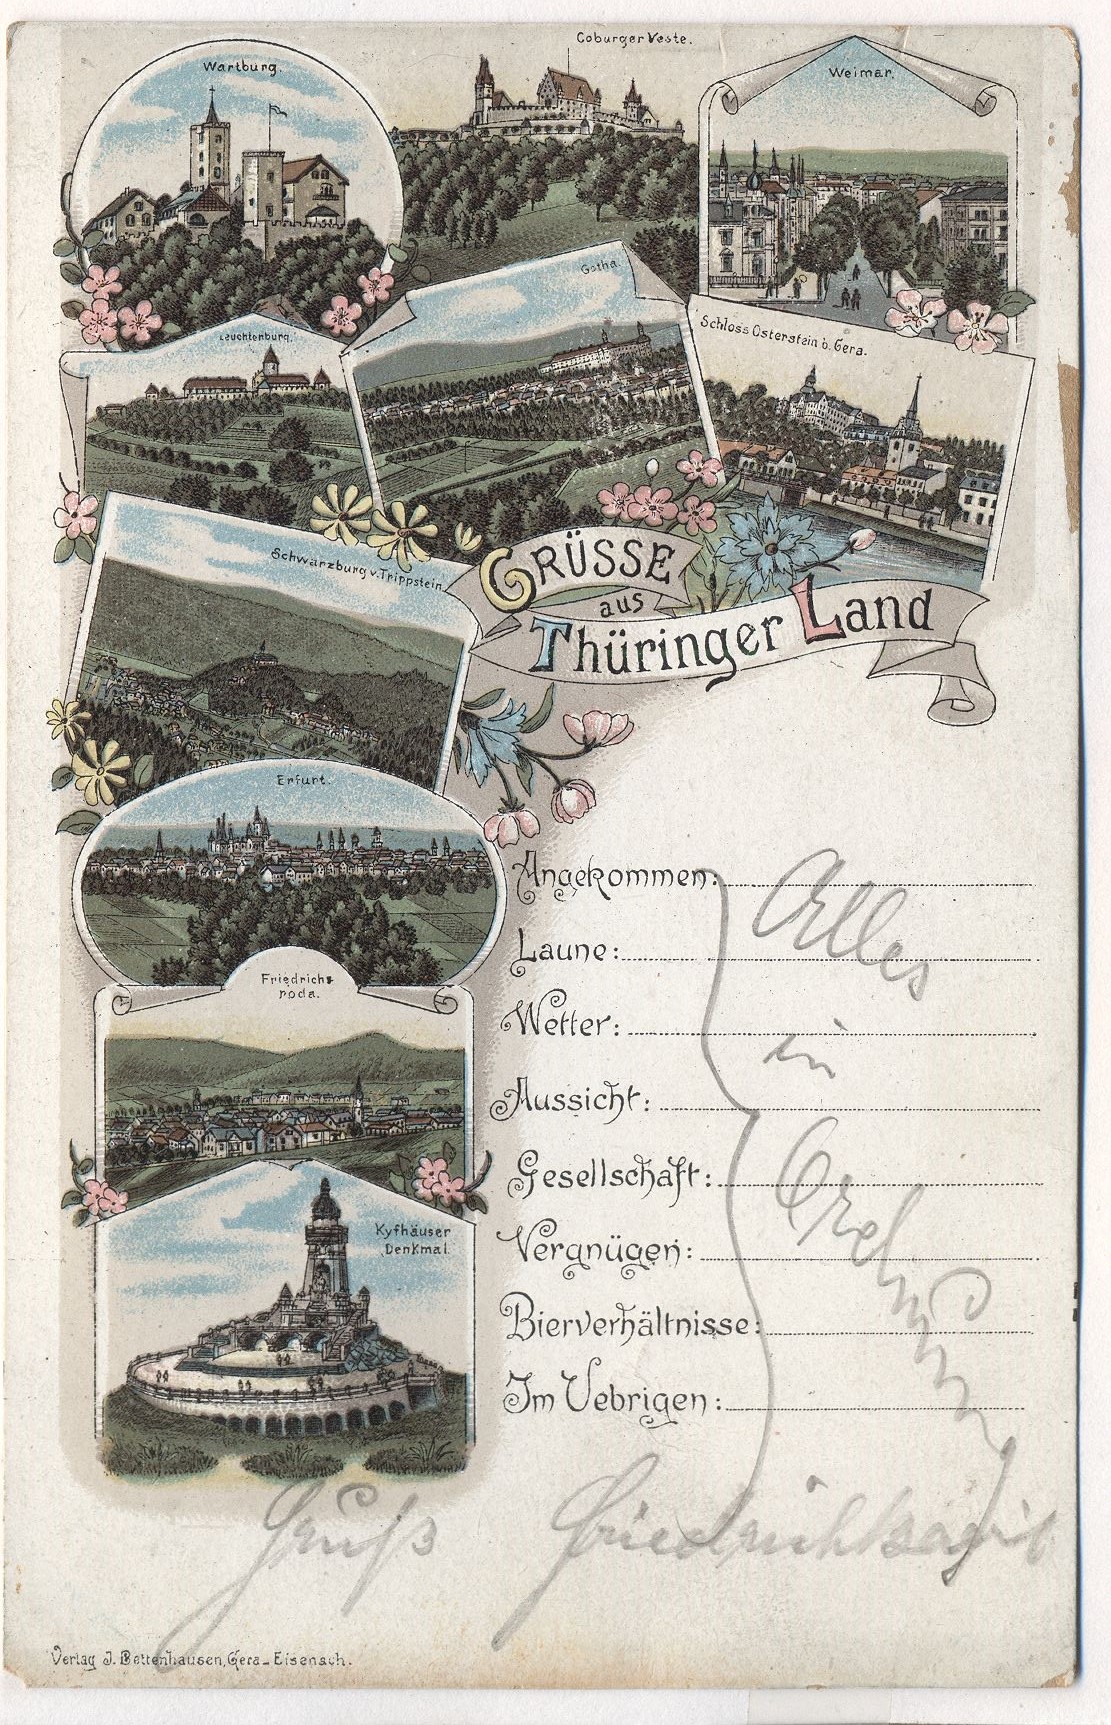 Wartburg.
Coburger Veste.
Weimar.
Leuchtenburg.
Gotha.
Schloss Osterstein b. Gera.
Schwarzburg v. Trippstein.
GRÜSSE
aus
Thüringer Land
Erfurt.
Friedrichs
roda.
Kyfhäuser
Denkmal.
Angekommen:
Laune:
Wetter:
Aussicht:
Gesellschaft:
Vergnügen:
Bierverhältnisse:
Im Uebrigen:
Alles
in
Ordnung
Gruß
Verlag J. Bettenhausen, Gera-Eisenach.